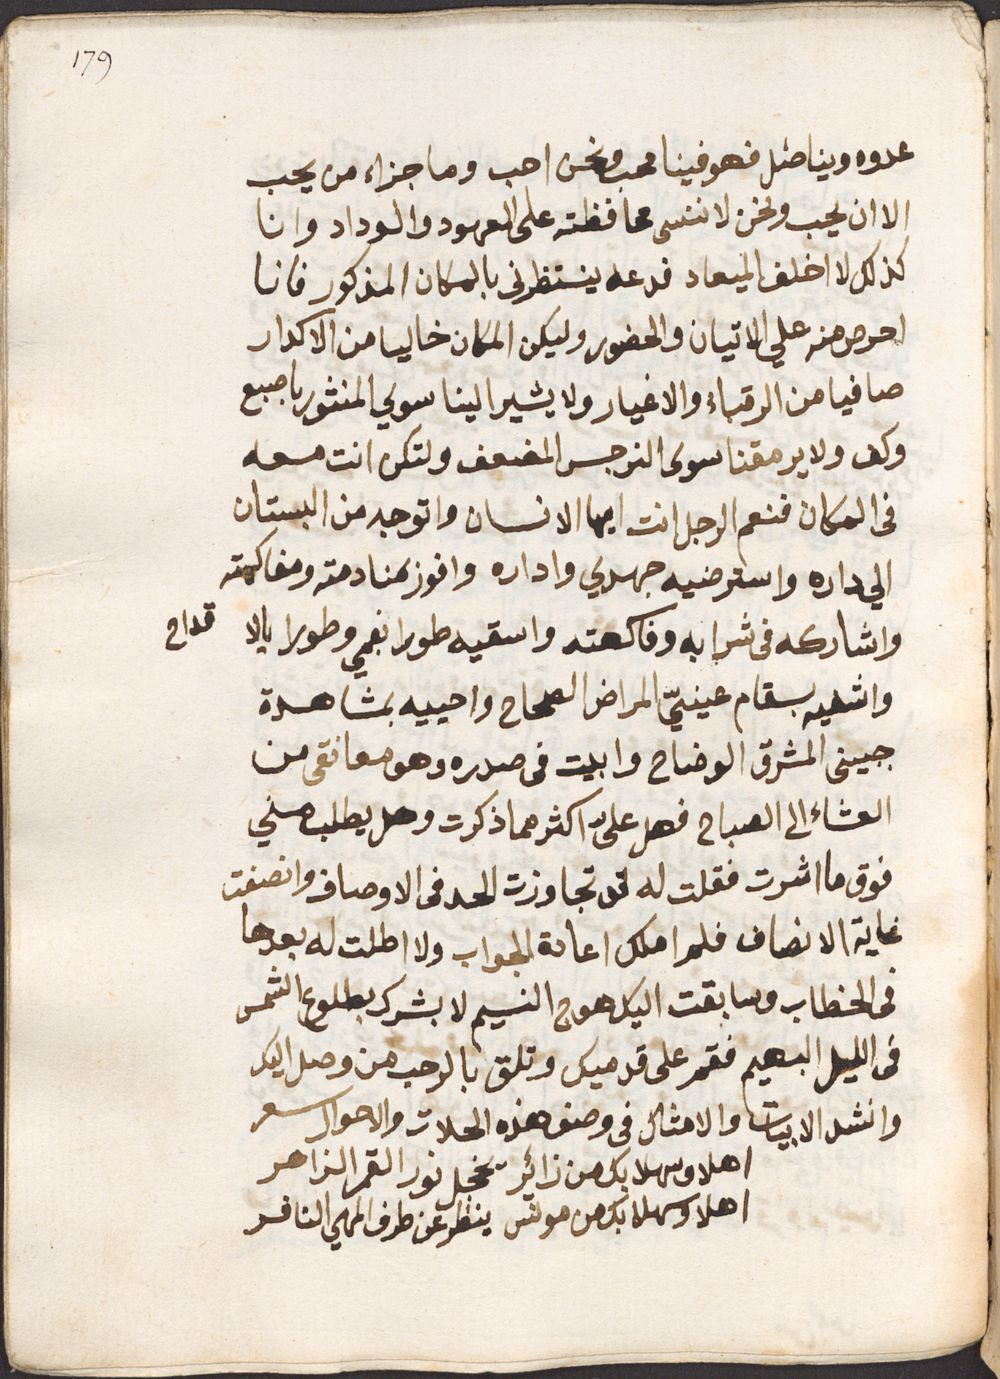 179
عدوه ويناضل فهو فينا محب ونحن احب وما جزاء من يحب
الا ان يحب ونحن لا ننسى محافظته على العهود والوداد وانا
كذلك لا اخلف الميعاد فدعه ينتظرني بالمكان المذكور فانا
احرص منه علي الاتيان والحضور وليكن المكان خاليا من الاكدار
صافيا من الرقباء والاغيار ولا يشير الينا سوي المنثور باصبع
وكف ولا يرمقنا سوى النرجس المضعف ولتكن انت معه
فى المكان فنعم الرجل انت ايها الانسان واتوجه من البستان
الي داره واسترضيه جهدي واداره وافوز بمنادمته ومفاكهته
واشاركه فى شرابه وفاكهته واسقيه طورا بفمي وطورا بالاقداح
واشفيه بسقام عينيّ المراض الصحاح واحييه بمشاهدة
جبينى المشرق الوضاح وابيت فى صدره وهو معانقى من
العشاء الى الصباح فهل علىّ اكثر مما ذكرت وهل يطلب مني
فوق ما اشرت فقلت له لقد تجاوزت الحد فى الاوصاف وانصفت
غاية الانصاف فلم املك اعادة الجواب ولا اطلت له بعدها
فى الخطاب وسابقت اليك هوج النسيم لابشرك بطلوع الشمس
فى الليل البهيم فقم على قدميك وتلق بالرحب من وصل اليك
وانشد الابيات والامثال فى وصف هذه الحلات والاحوال شعر
اهلا وسهلا بك من زائر يخجل نور القمر الزاهر
اهلا وسهلا بك من مونس ينظر عن طرف المهي النافر